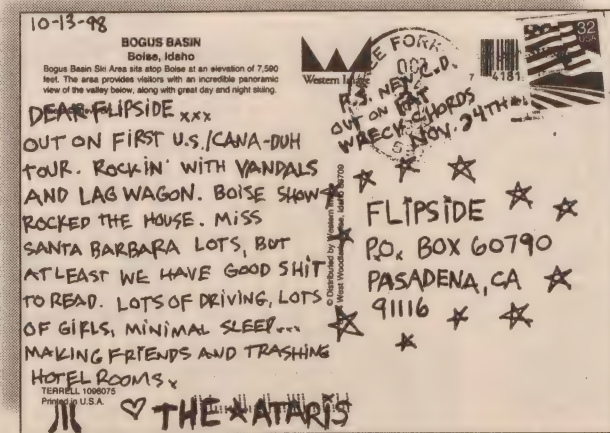 10-13-98
BOGUS BASIN
Boise, Idaho
Bogus Basin Ski Area sits atop Boise at an elevation of 7,590
feet. The area provides visitors with an incredible panoramic
view of the valley below, along with great day and night skiing.
DEAR FLIPSIDE xxx
OUT ON FIRST U.S./CANA-DUH
TOUR. ROCKIN' WITH VANDALS
AND LAGWAGON. BOISE SHOW
ROCKED THE HOUSE. MISS
SANTA BARBARA LOTS, BUT
AT LEAST WE HAVE GOOD SHIT
TO READ. LOTS OF DRIVING, LOTS
OF GIRLS, MINIMAL SLEEP...
MAKING FRIENDS AND TRASHING
HOTEL ROOMS x
TERRELL 1096075
Printed in U.S.A.
♡ THE ★ ATARIS
Western Image
© Distributed by Western
West Idaho 83709
P.S. NEW C.D.
OUT ON FAT
WRECK CHORDS
NOV. 24TH
OCT
7 4181
32
USA
FLIPSIDE
P.O. BOX 60790
PASADENA, CA
91116